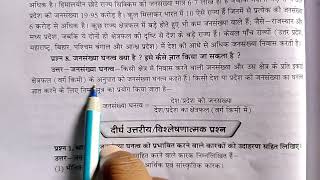 अधिक है। हिमालयीन छोटे राज्य सिक्किम की जनसंख्या मात्र 6·7 लाख है।
प्रदेश की जनसंख्या 19·95 करोड़ है। कुल मिलाकर भारत में
6 करोड़ से अधिक है। कुछ राज्य क्षेत्रफल में बड़े होते हुए भी कम जनसंख्या वाले हैं; जैसे—राजस्थान और
मध्य प्रदेश, जबकि ये दोनों ही क्षेत्रफल की दृष्टि से देश के बड़े राज्य हैं। केवल पाँच राज्यों (उत्तर प्रदेश,
महाराष्ट्र, बिहार, पश्चिम बंगाल और आन्ध्र प्रदेश) में देश की आधे से अधिक जनसंख्या निवास करती है।
प्रश्न 8. जनसंख्या घनत्व क्या है ? इसे कैसे ज्ञात किया जा सकता है ?
उत्तर—जनसंख्या घनत्व—किसी क्षेत्र में निवास करने वाली जनसंख्या और उस क्षेत्र के प्रति इकाई
क्षेत्रफल (वर्ग किमी.) के अनुपात को जनसंख्या घनत्व कहते हैं। किसी देश या प्रदेश की जनसंख्या का घनत्व
ज्ञात करने के लिए सूत्र का प्रयोग किया जाता है—
जनसंख्या घनत्व = देश/प्रदेश की जनसंख्या
देश/प्रदेश का क्षेत्रफल (वर्ग किमी में)
दीर्घ उत्तरीय/विश्लेषणात्मक प्रश्न
प्रश्न 1. घनत्व को प्रभावित करने वाले कारकों को उदाहरण सहित लिखिए।
उत्तर— करने वाले कारक निम्नलिखित हैं—
(1) आर्थिक एवं सांस्कृतिक कारक।